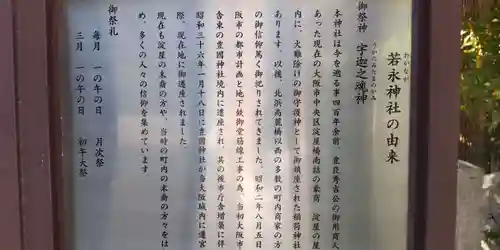 若永神社の由来
わかなが
御祭神　宇迦之魂神
うかのみたまのかみ
本神社は今を遡る事四百年余前、豊臣秀吉公の御用商人で
あった現在の大阪市中央区淀屋橋南詰の豪商　淀屋の屋敷
内に、火難除けの御守護神として御鎮座された稲荷神社で
あります。以後、北浜高麗橋以西の多数の町内商家の方々
の御信仰篤く御祀りされてきました。昭和二年八月五日大
阪市の都市計画と地下鉄御堂筋線工事の為、当初大阪市庁
舎東の豊國神社境内に遷座され、其の後市庁舎増築に伴い
昭和三十六年一月十八日に豊國神社が当大阪城内に遷宮の
際、現在地に御遷座されました。
現在も淀屋の末裔の方や、当時の町内の末裔の方々をはじ
め、多くの人々の信仰を集めています
御祭礼
毎月　一の午の日　月次祭
三月　一の午の日　初午大祭